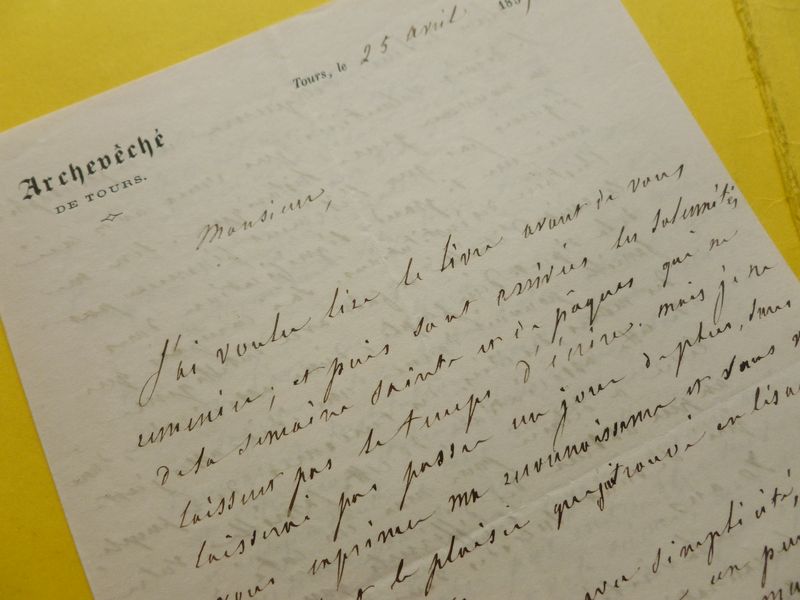 Tours, le 25 avril 185
Archevêché
DE TOURS.
Monsieur,
J'ai voulu lire le livre avant de vous
remercier; et puis sont arrivées les solennités
de la semaine sainte et de pâques qui ne
laissent pas le temps d'écrire. mais je ne
laisserai pas passer un jour de plus, sans
vous exprimer ma reconnaissance et vous
le plaisir que j'ai trouvé en lisa
simplicité,
un